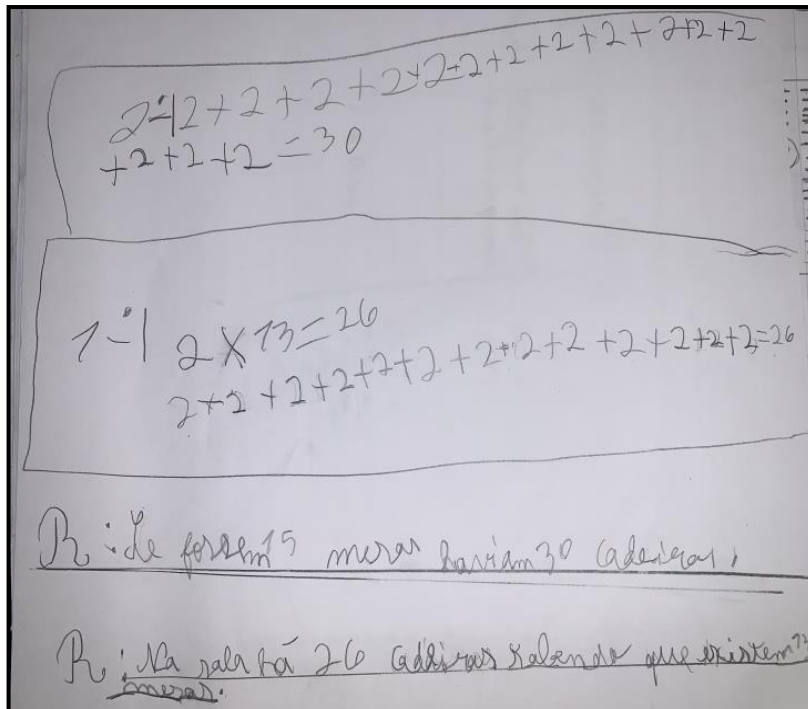 2-|2+2+2+2+2+2+2+2+2+2+2+2
+2+2+2=30
1-| 2×13=26
2+2+2+2+2+2+2+2+2+2+2+2+2=26
R: Se forem 15 mesas haviam 30 cadeiras.
R: Na sala há 26 cadeiras sabendo que existem 13
mesas.